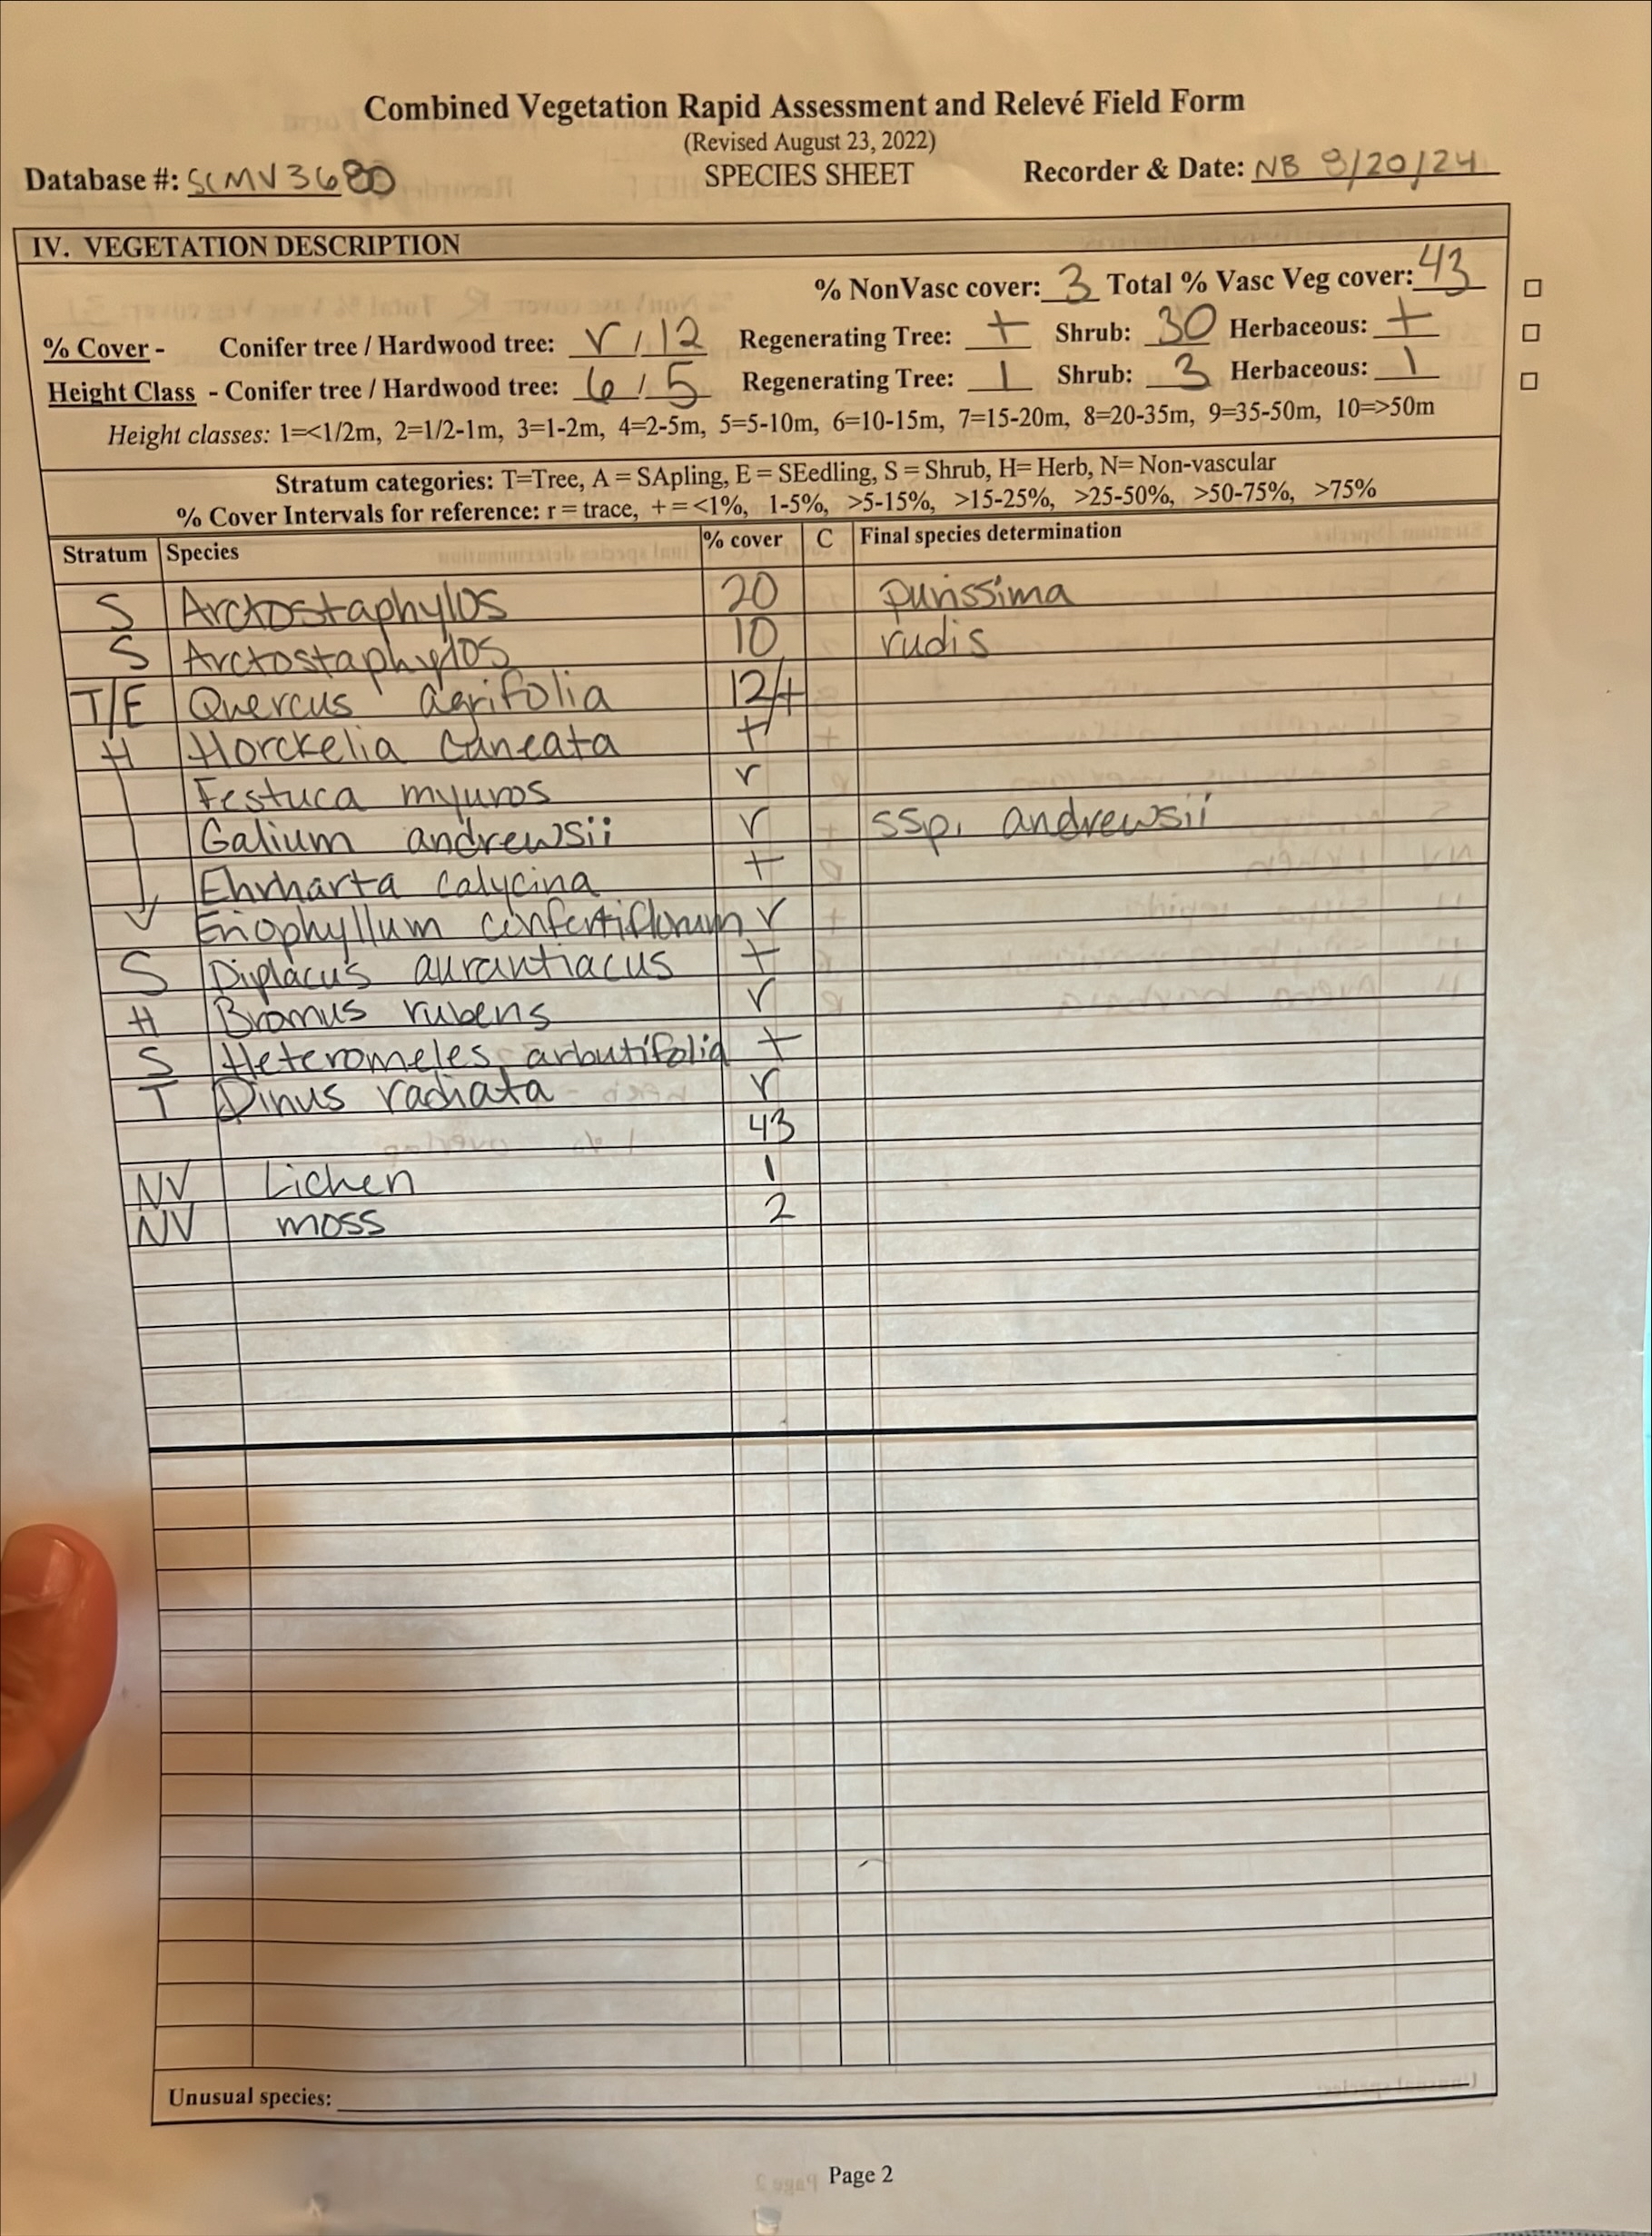 Combined Vegetation Rapid Assessment and Relevé Field Form
(Revised August 23, 2022)
Database #: SCMV3680 SPECIES SHEET Recorder & Date: NB 8/20/24
IV. VEGETATION DESCRIPTION
% NonVasc cover: 3 Total % Vasc Veg cover: 43
% Cover - Conifer tree / Hardwood tree: r / 12 Regenerating Tree: + Shrub: 30 Herbaceous: +
Height Class - Conifer tree / Hardwood tree: 6 / 5 Regenerating Tree: 1 Shrub: 3 Herbaceous: 1
Height classes: 1=<1/2m, 2=1/2-1m, 3=1-2m, 4=2-5m, 5=5-10m, 6=10-15m, 7=15-20m, 8=20-35m, 9=35-50m, 10=>50m
Stratum categories: T=Tree, A = SApling, E = SEedling, S = Shrub, H= Herb, N= Non-vascular
% Cover Intervals for reference: r = trace, + = <1%, 1-5%, >5-15%, >15-25%, >25-50%, >50-75%, >75%
Stratum Species % cover C Final species determination
S Arctostaphylos 20 purissima
S Arctostaphylos 10 rudis
T/E Quercus agrifolia 12/+
H Horckelia cuneata +
Festuca myuros r
Galium andrewsii r ssp. andrewsii
Ehrharta calycina +
Eriophyllum confertiflorum r
S Diplacus aurantiacus +
H Bromus rubens r
S Heteromeles arbutifolia +
T Pinus radiata r
43
NV Lichen 1
NV moss 2
Unusual species:
Page 2